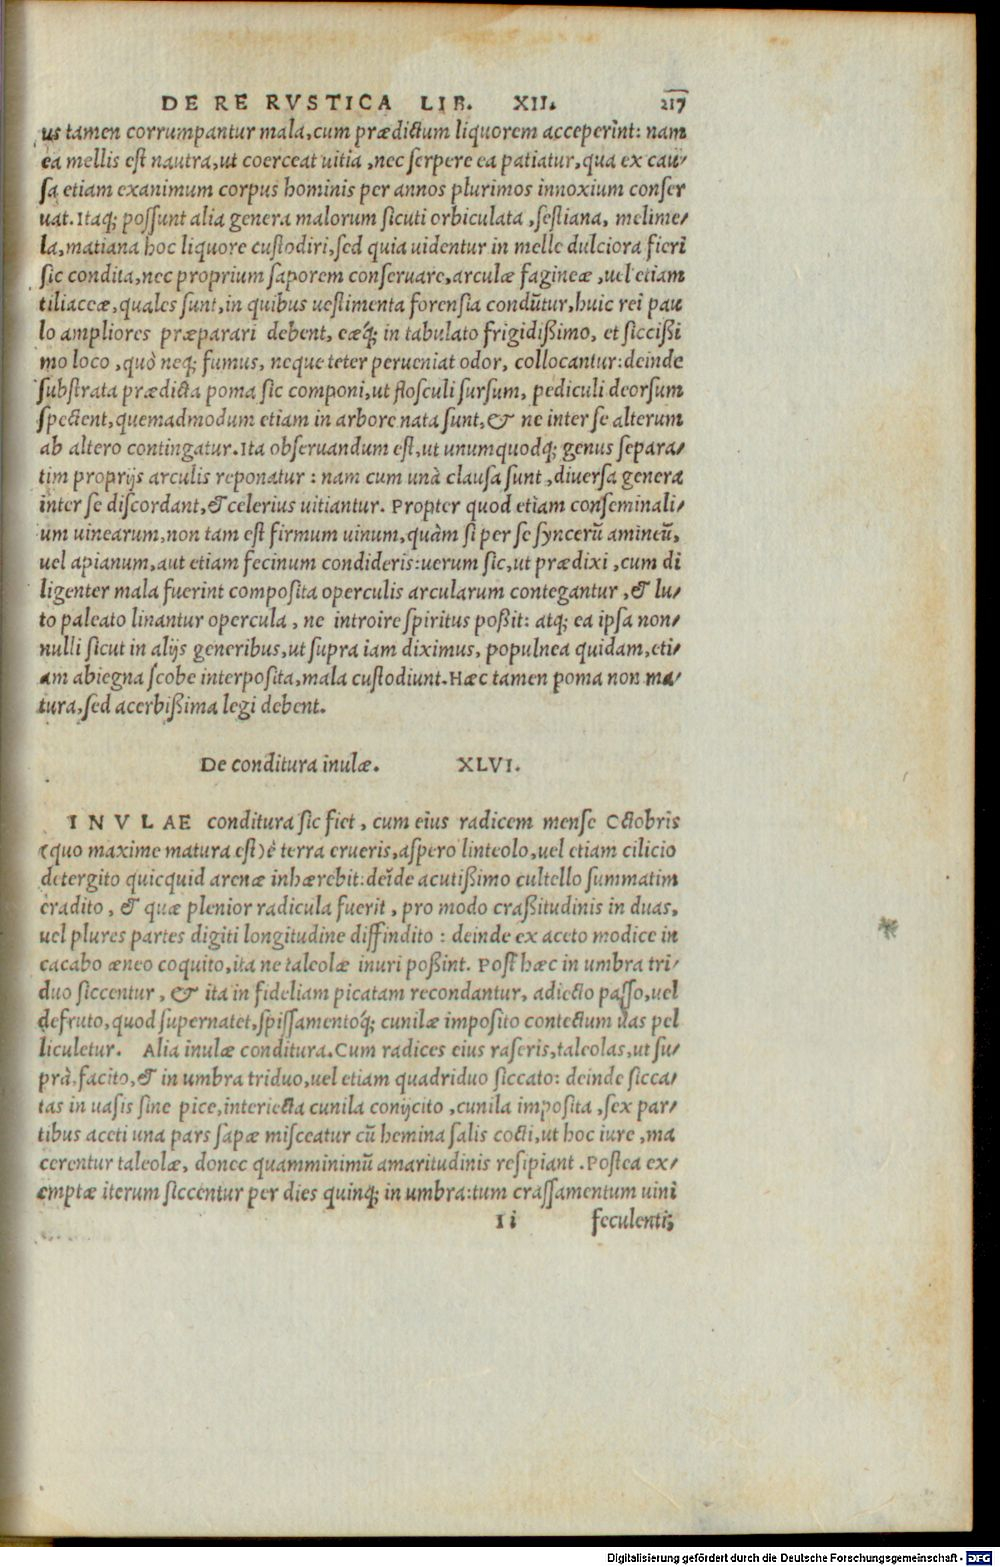 DE RE RVSTICA LIB. XII. 217
us tamen corrumpantur mala, cum prædictum liquorem acceperint: nam
ea mellis est nautra, ut coerceat uitia, nec serpere ea patiatur, qua ex cau/
sa etiam exanimum corpus hominis per annos plurimos innoxium conser
uat. Itaq; possunt alia genera malorum sicuti orbiculata, sestiana, melime/
la, matiana hoc liquore custodiri, sed quia uidentur in melle dulciora fieri
sic condita, nec proprium saporem conseruare, arculæ fagineæ, uel etiam
tiliaceæ, quales sunt, in quibus uestimenta forensia condūtur, huic rei pau
lo ampliores præparari debent, eæq́; in tabulato frigidißimo, et siccißi
mo loco, quò neq; fumus, neque teter perueniat odor, collocantur: deinde
substrata prædicta poma sic componi, ut flosculi sursum, pediculi deorsum
spectent, quemadmodum etiam in arbore nata sunt, & ne inter se alterum
ab altero contingatur. Ita obseruandum est, ut unumquodq; genus separa/
tim proprijs arculis reponatur: nam cum unà clausa sunt, diuersa genera
inter se discordant, & celerius uitiantur. Propter quod etiam conseminali/
um uinearum, non tam est firmum uinum, quàm si per se syncerū amineū,
uel apianum, aut etiam fecinum condideris: uerum sic, ut prædixi, cum di
ligenter mala fuerint composita operculis arcularum contegantur, & lu/
to paleato linantur opercula, ne introire spiritus poßit: atq; ea ipsa non/
nulli sicut in alijs generibus, ut supra iam diximus, populnea quidam, eti/
am abiegna scobe interposita, mala custodiunt. Hæc tamen poma non ma/
tura, sed acerbißima legi debent.
De conditura inulæ. XLVI.
INVLAE conditura sic fiet, cum eius radicem mense Octobris
(quo maxime matura est) è terra erueris, aspero linteolo, uel etiam cilicio
detergito quicquid arenæ inhærebit: deīde acutißimo cultello summatim
eradito, & quæ plenior radicula fuerit, pro modo craßitudinis in duas,
uel plures partes digiti longitudine diffindito: deinde ex aceto modice in
cacabo æneo coquito, ita ne taleolæ inuri poßint. Post hæc in umbra tri/
duo siccentur, & ita in fideliam picatam recondantur, adiecto passo, uel
defruto, quod supernatet, spissamentoq́; cunilæ imposito contectum uas pel
liculetur. Alia inulæ conditura. Cum radices eius raseris, taleolas, ut su/
prà, facito, & in umbra triduo, uel etiam quadriduo siccato: deinde sicca/
tas in uasis sine pice, interiecta cunila conijcito, cunila imposita, sex par/
tibus aceti una pars sapæ misceatur cū hemina salis cocti, ut hoc iure, ma
cerentur taleolæ, donec quamminimū amaritudinis resipiant. Postea ex/
emptæ iterum siccentur per dies quinq; in umbra: tum crassamentum uini
Ii feculenti;
Digitalisierung gefördert durch die Deutsche Forschungsgemeinschaft - DFG